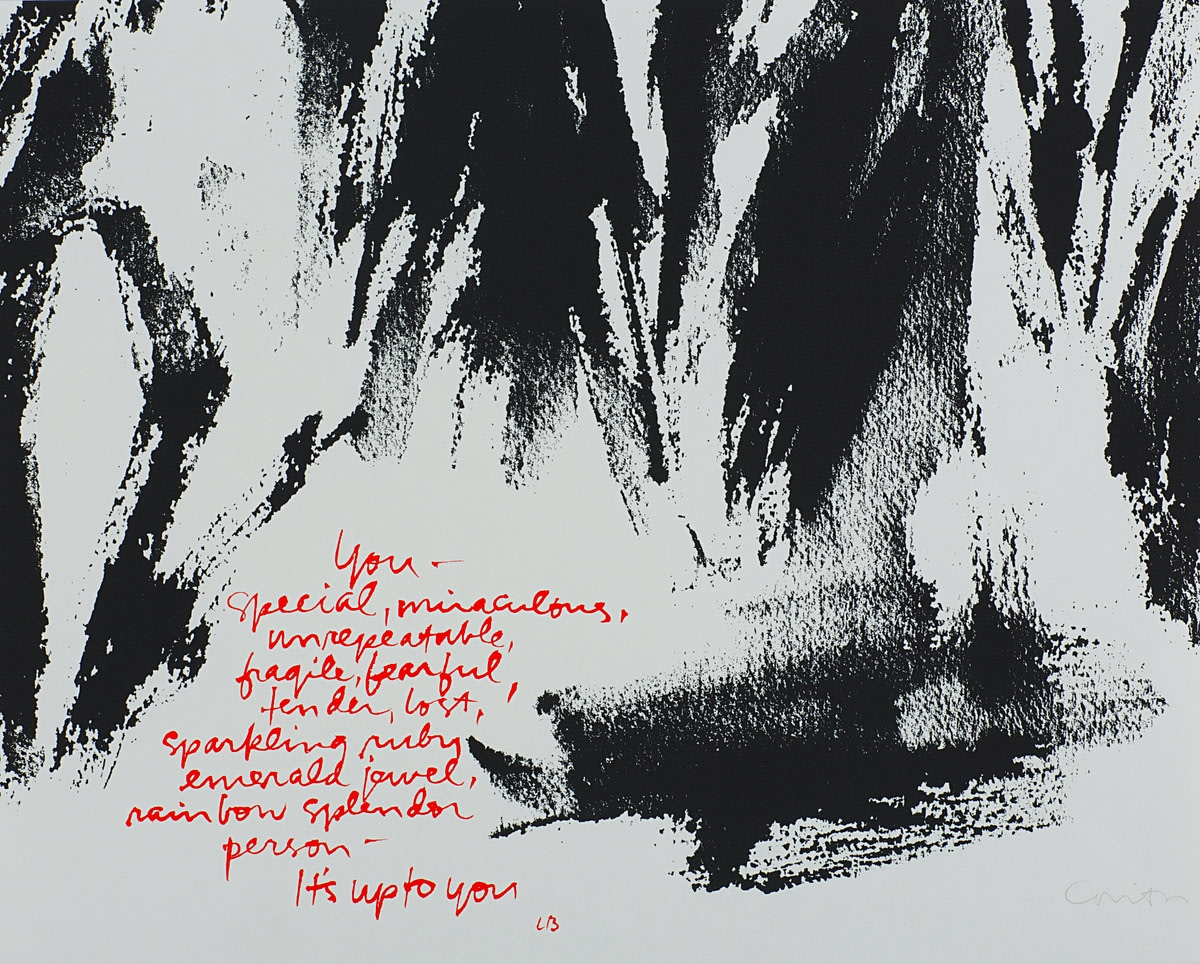 You -
special, miraculous,
unrepeatable,
fragile, fearful,
tender, lost,
sparkling ruby
emerald jewel,
rainbow splendor
person -
It's up to you
LB
Corita